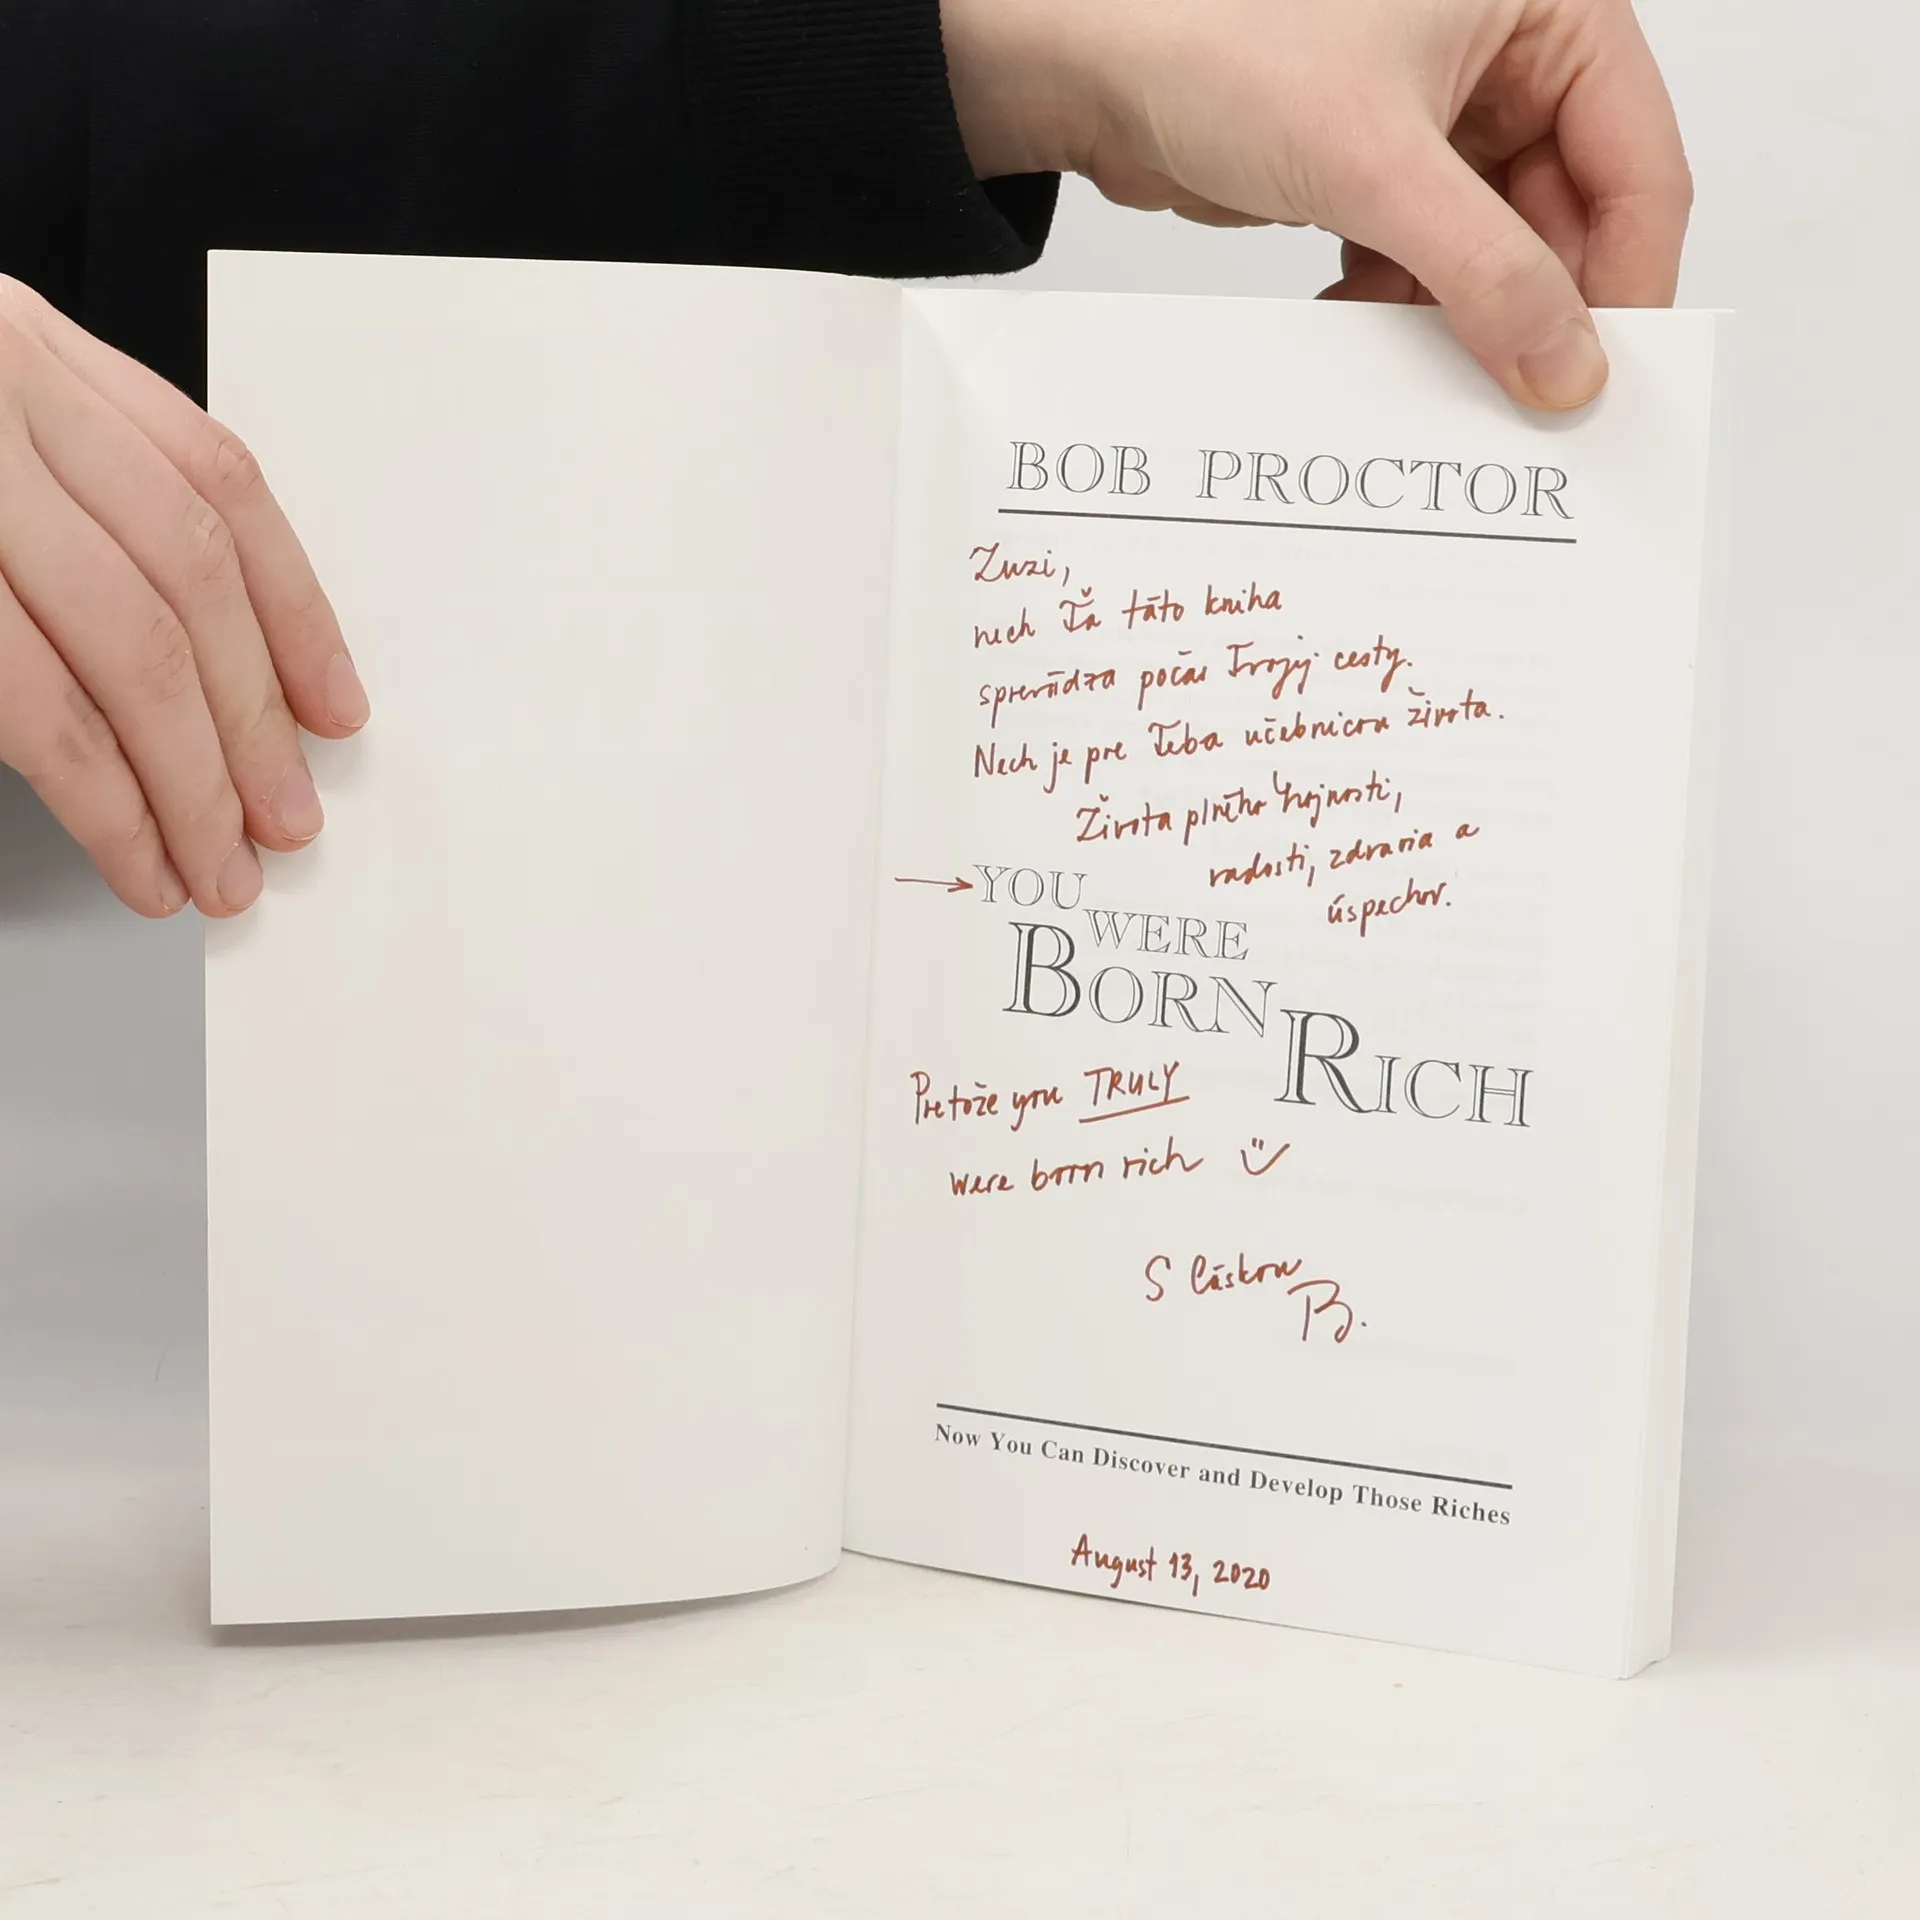 BOB PROCTOR
Zuzi,
nech Ťa táto kniha
sprevádza počas Tvojej cesty.
Nech je pre Teba učebnicou života.
Života plného hojnosti,
radosti, zdravia a
úspechov.
→ YOU
WERE
BORN
RICH
Pretože you TRULY
were born rich
S láskou
B.
Now You Can Discover and Develop Those Riches
August 13, 2020